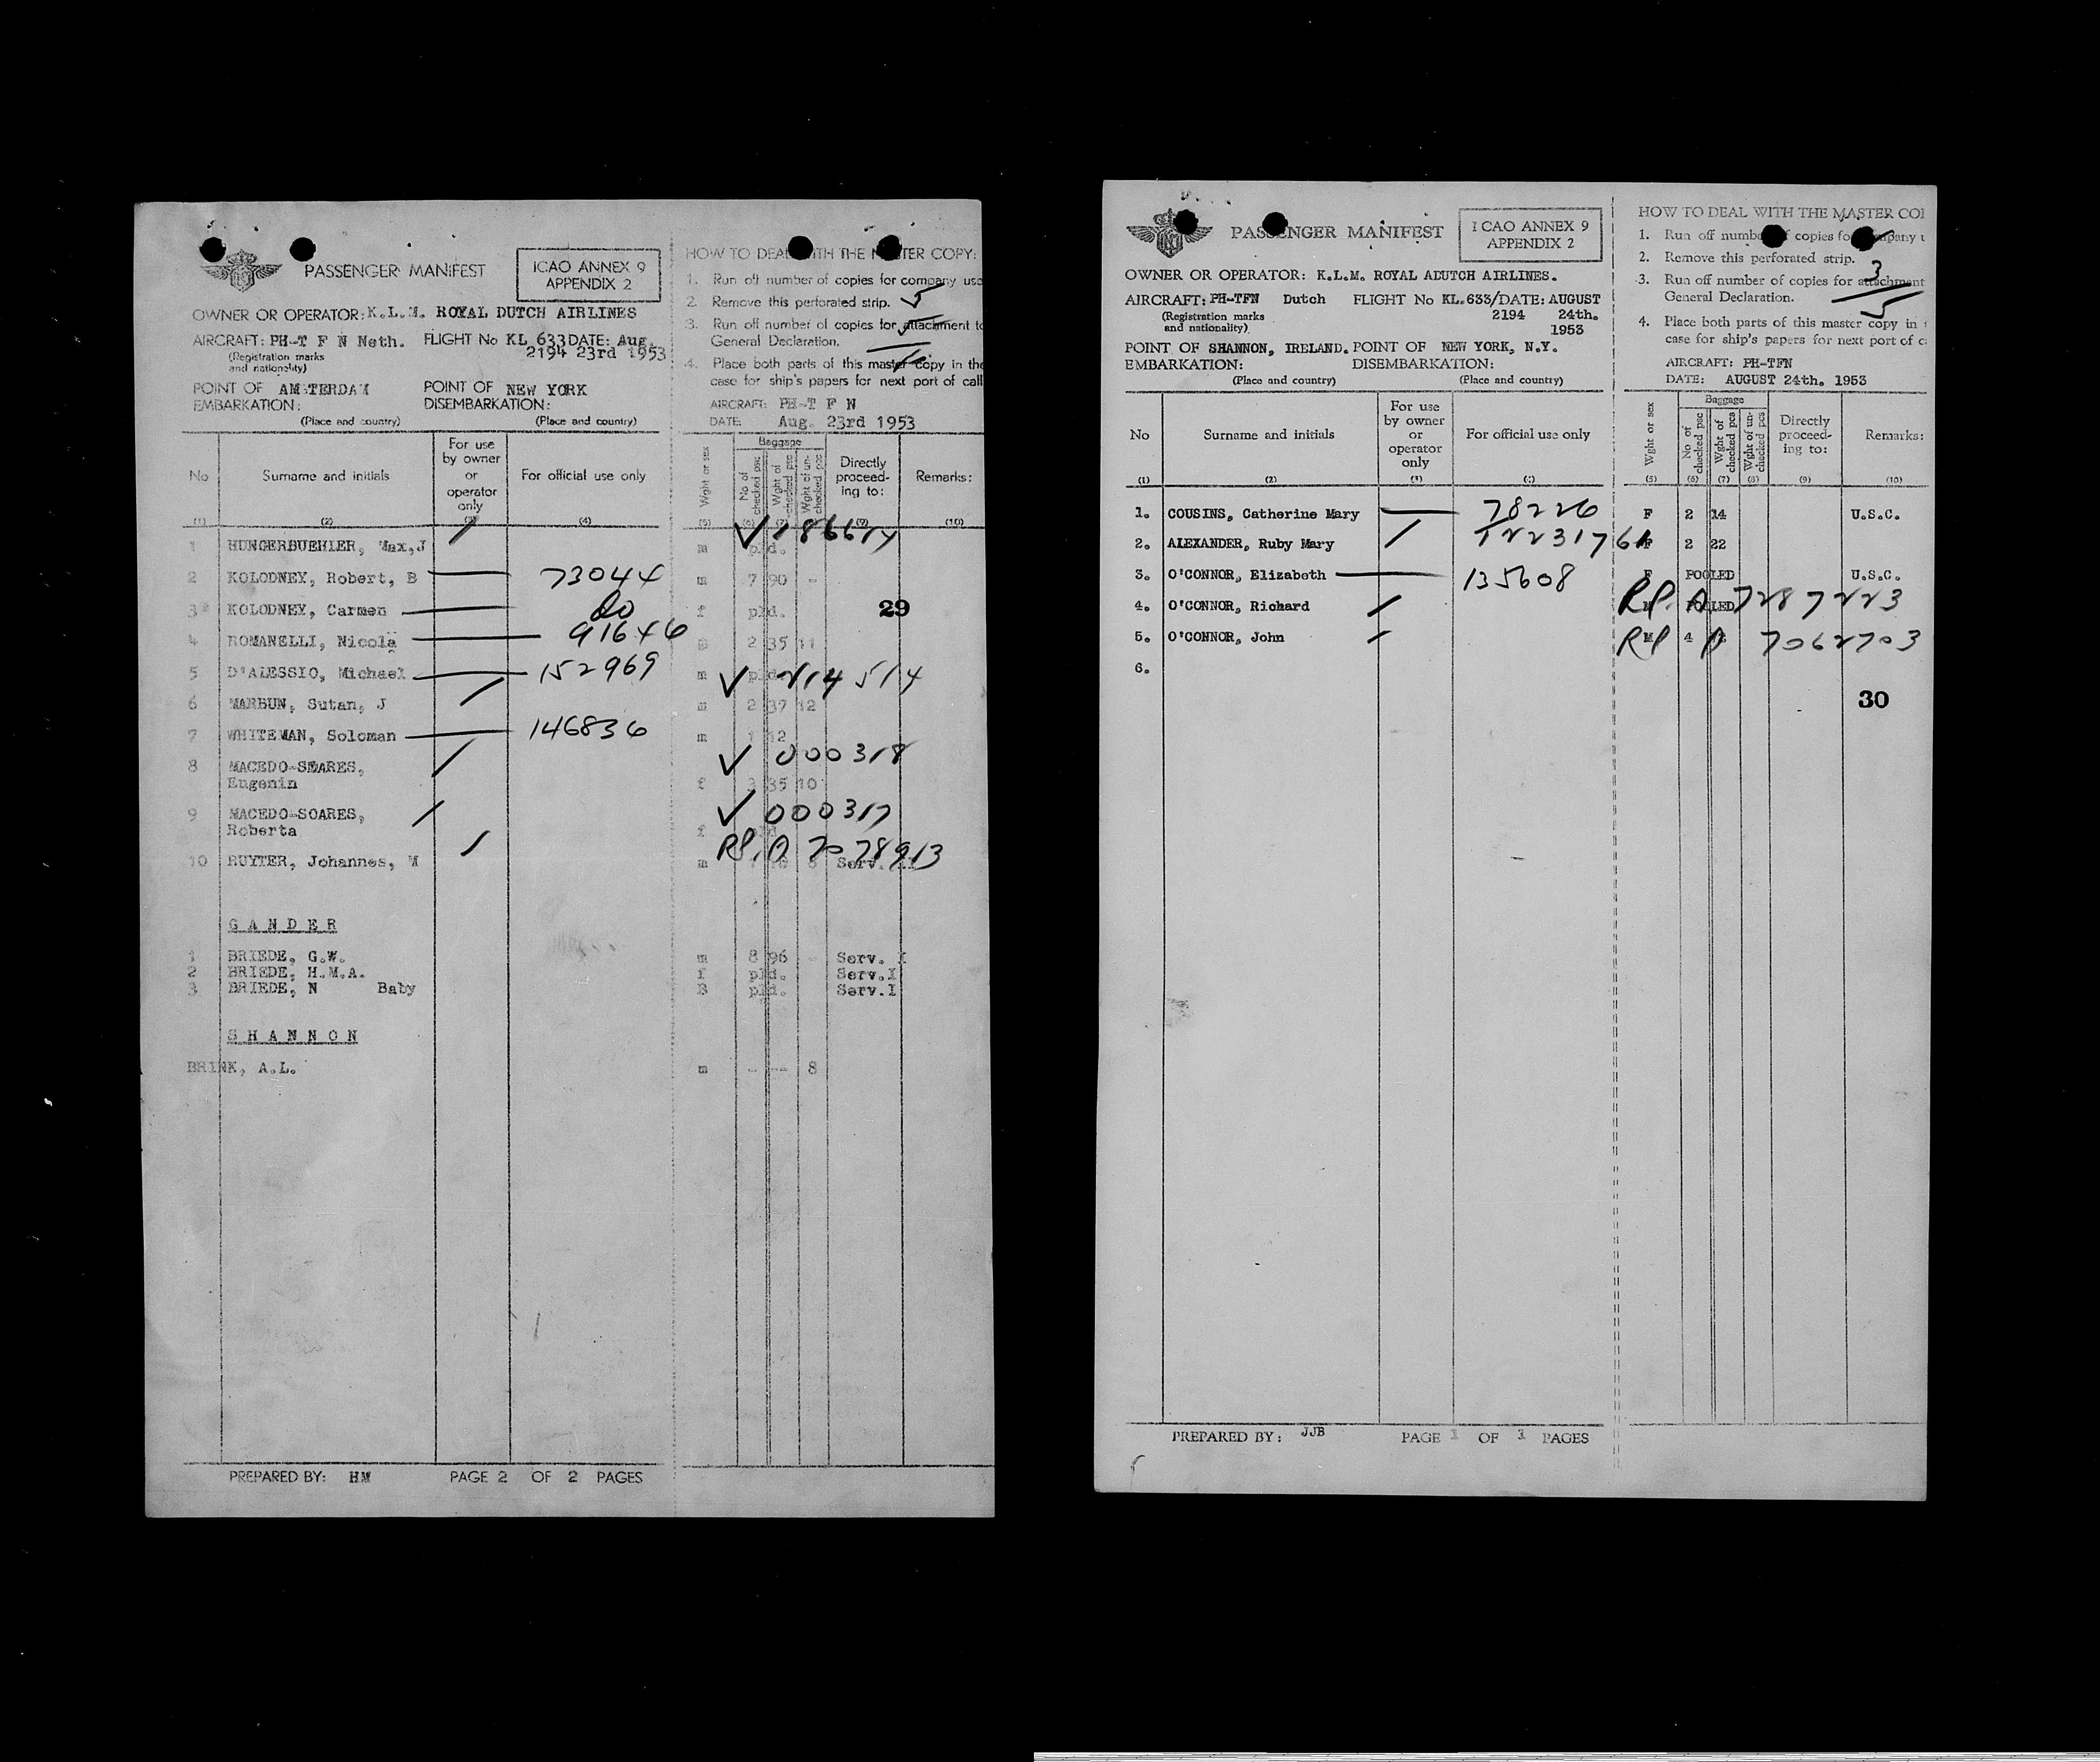 PASSENGER MANIFEST
ICAO ANNEX 9
APPENDIX 2
OWNER OR OPERATOR: K.L.M. ROYAL DUTCH AIRLINES
AIRCRAFT: PH-T F N Neth. FLIGHT No KL 633 DATE: Aug.
(Registration marks and nationality) 2194 23rd 1953
POINT OF EMBARKATION: AMSTERDAM POINT OF DISEMBARKATION: NEW YORK
(Place and country) (Place and country)
HOW TO DEAL WITH THE MASTER COPY:
1. Run off number of copies for company use
2. Remove this perforated strip. 5
3. Run off number of copies for attachment to
General Declaration.
4. Place both parts of this master copy in the
case for ship's papers for next port of call
AIRCRAFT: PH-T F N
DATE: Aug. 23rd 1953
No Surname and initials For use by owner or operator only For official use only Wght or sex Baggage No of checked pcs Wght of checked pcs Wght of un-checked pcs Directly proceed-ing to: Remarks:
(1) (2) (3) (4) (5) (6) (7) (8) (9) (10)
1 HUNGERBUEHLER, Max,J m pld.
2 KOLODNEY, Robert, B 73044 m 7 90 -
3 KOLODNEY, Carmen DO f pld. 29
4 ROMANELLI, Nicola 91646 2 35 11
5 D'ALESSIO, Michael 152969 m pld.
6 MARBUN, Sutan, J 214514 m 2 37 12
7 WHITEMAN, Soloman 146836 m 1 12
8 MACEDO-SEARES, 000318
Eugenin f 3 35 10
9 MACEDO-SOARES, 000317
Roberta f pld
10 RUYTER, Johannes, M RP. A 7078913 m Serv. II
GANDER
1 BRIEDE, G.W. m 8 96 - Serv. I
2 BRIEDE, H.M.A. f pld. Serv.I
3 BRIEDE, N Baby B pld. Serv.I
SHANNON
BRINK, A.L. m - -- 8
PREPARED BY: HM PAGE 2 OF 2 PAGES
PASSENGER MANIFEST
ICAO ANNEX 9
APPENDIX 2
OWNER OR OPERATOR: K.L.M. ROYAL ADUTCH AIRLINES.
AIRCRAFT: PH-TFN Dutch FLIGHT No KL.633/DATE: AUGUST
(Registration marks and nationality) 2194 24th.
1953
POINT OF EMBARKATION: SHANNON, IRELAND. POINT OF DISEMBARKATION: NEW YORK, N.Y.
(Place and country) (Place and country)
HOW TO DEAL WITH THE MASTER COP
1. Run off number of copies for company u
2. Remove this perforated strip.
3. Run off number of copies for attachment 3
General Declaration. 5
4. Place both parts of this master copy in t
case for ship's papers for next port of c
AIRCRAFT: PH-TFN
DATE: AUGUST 24th. 1953
No Surname and initials For use by owner or operator only For official use only Wght or sex Baggage No of checked pcs Wght of checked pcs Wght of un-checked pcs Directly proceed-ing to: Remarks:
(1) (2) (3) (4) (5) (6) (7) (8) (9) (10)
1. COUSINS, Catherine Mary 78226 F 2 14 U.S.C.
2. ALEXANDER, Ruby Mary F 2 22
3. O'CONNOR, Elizabeth 135608 F POOLED U.S.C.
4. O'CONNOR, Richard RP. A 7287223 POOLED
5. O'CONNOR, John RP A 7062703 M 4
6.
30
PREPARED BY: JJB PAGE 1 OF 1 PAGES